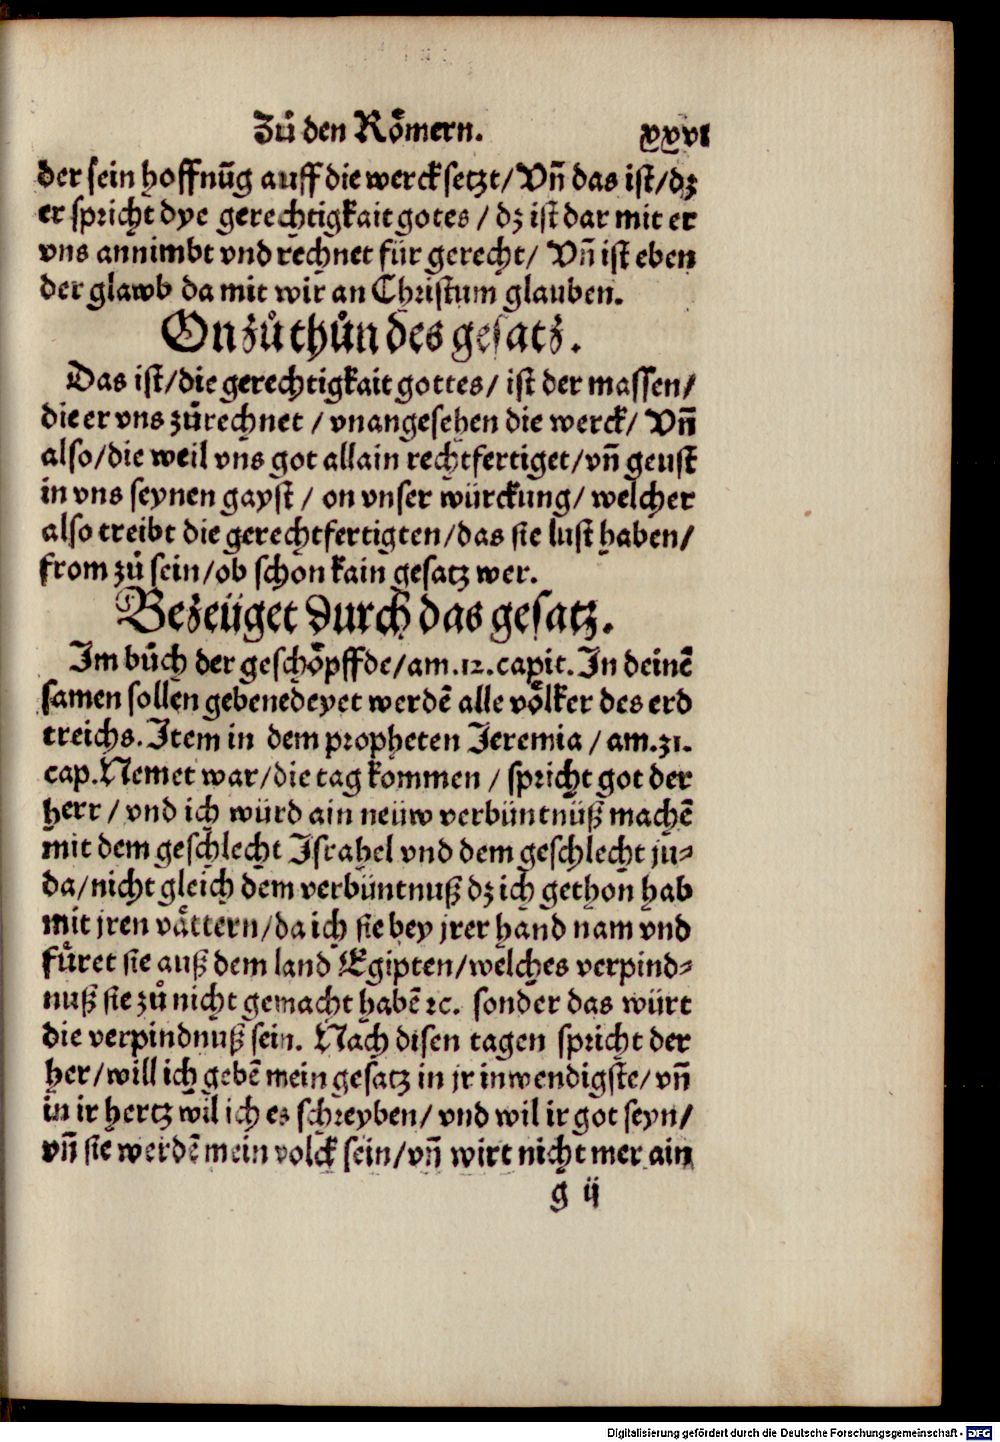 Zů den Rőmern. xxxvi
der sein hoffnūg auff die werck setzt/ Vn̄ das ist/dz
er spricht dye gerechtigkait gotes / dz ist dar mit er
vns annimbt vnd rechnet für gerecht/ Vn̄ ist eben
der glawb da mit wir an Christum glauben.
On zů thůn des gesatz.
Das ist/die gerechtigkait gottes/ ist der massen/
die er vns zůrechnet / vnangesehen die werck/ Vn̄
also/die weil vns got allain rechtfertiget/vn̄ geust
in vns seynen gayst / on vnser würckung/ welcher
also treibt die gerechtfertigten/das sie lust haben/
from zů sein/ob schon kain gesatz wer.
Bezeüget durch das gesatz.
Im bůch der geschőpffde/am.12.capit.In deinē
samen sollen gebenedeyet werdē alle vőlker des erd
treichs.Item in dem propheten Jeremia / am.31.
cap.Nemet war/die tag kommen / spricht got der
herr / vnd ich würd ain neüw verbüntnüß machē
mit dem geschlecht Israhel vnd dem geschlecht ju⸗
da/nicht gleich dem verbüntnuß dz ich gethon hab
mit jren våttern/da ich sie bey jrer hand nam vnd
fůret sie auß dem land Egipten/welches verpind⸗
nuß sie zů nicht gemacht habē ꝛc. sonder das würt
die verpindnuß sein. Nach disen tagen spricht der
her/will ich gebē mein gesatz in jr inwendigste/vn̄
in ir hertz wil ich es schreyben/ vnd wil ir got seyn/
vn̄ sie werdē mein volck sein/vn̄ wirt nicht mer ain
g ij
Digitalisierung gefördert durch die Deutsche Forschungsgemeinschaft - DFG